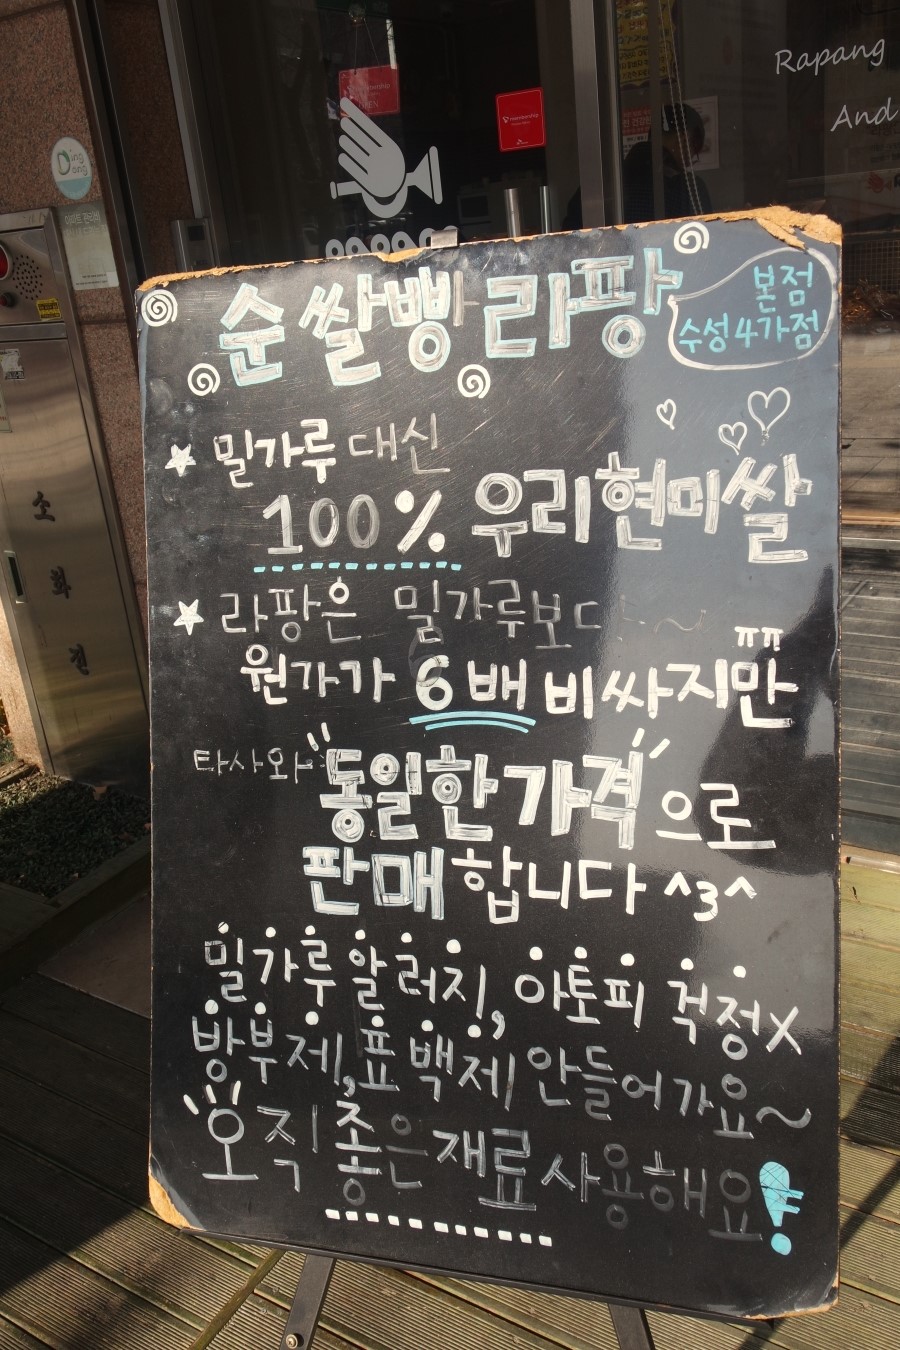 Rapang
And
Ding
dong
순쌀빵 라팡
본점
수성4가점
밀가루 대신
100% 우리현미쌀
라팡은 밀가루보다~
원가가 6배 비싸지만 ㅠㅠ
타사와 "동일한 가격"으로
판매합니다 ^3^
밀가루알러지, 아토피 걱정X
방부제, 표백제 안들어가요~
오직 좋은재료사용해요!
소화전